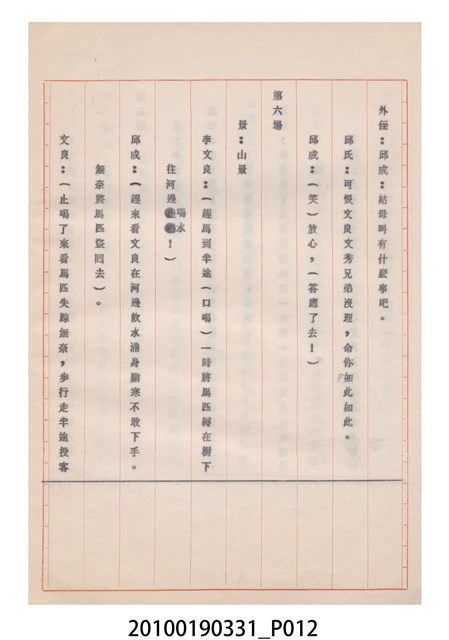 外侄：邱成：姑母叫有什麼事吧。
邱氏：可恨文良文秀兄弟沒理，命你如此如此。
邱成：（笑）放心，（答應了去！）
第六場
景：山景
李文良：（趕馬到半途（口喝）一時將馬匹縛在樹下
往河邊喝水！）
邱成：（趕來看文良在河邊飲水滿身膽寒不敢下手。
無奈將馬匹盜回去）。
文良：（止喝了來看馬匹失踪無奈，步行走半途投客
20100190331_P012